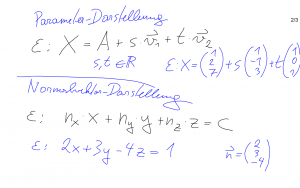 Parameter-Darstellung
ε: X = A + s·v₁ + t·v₂
s,t ∈ ℝ
ε: X = (1 2 7) + s(1 -1 3) + t(1 0 2)
Normalvektor-Darstellung
ε: nx·X + ny·y + nz·z = c
ε: 2x+3y-4z = 1
n = (2 3 -4)